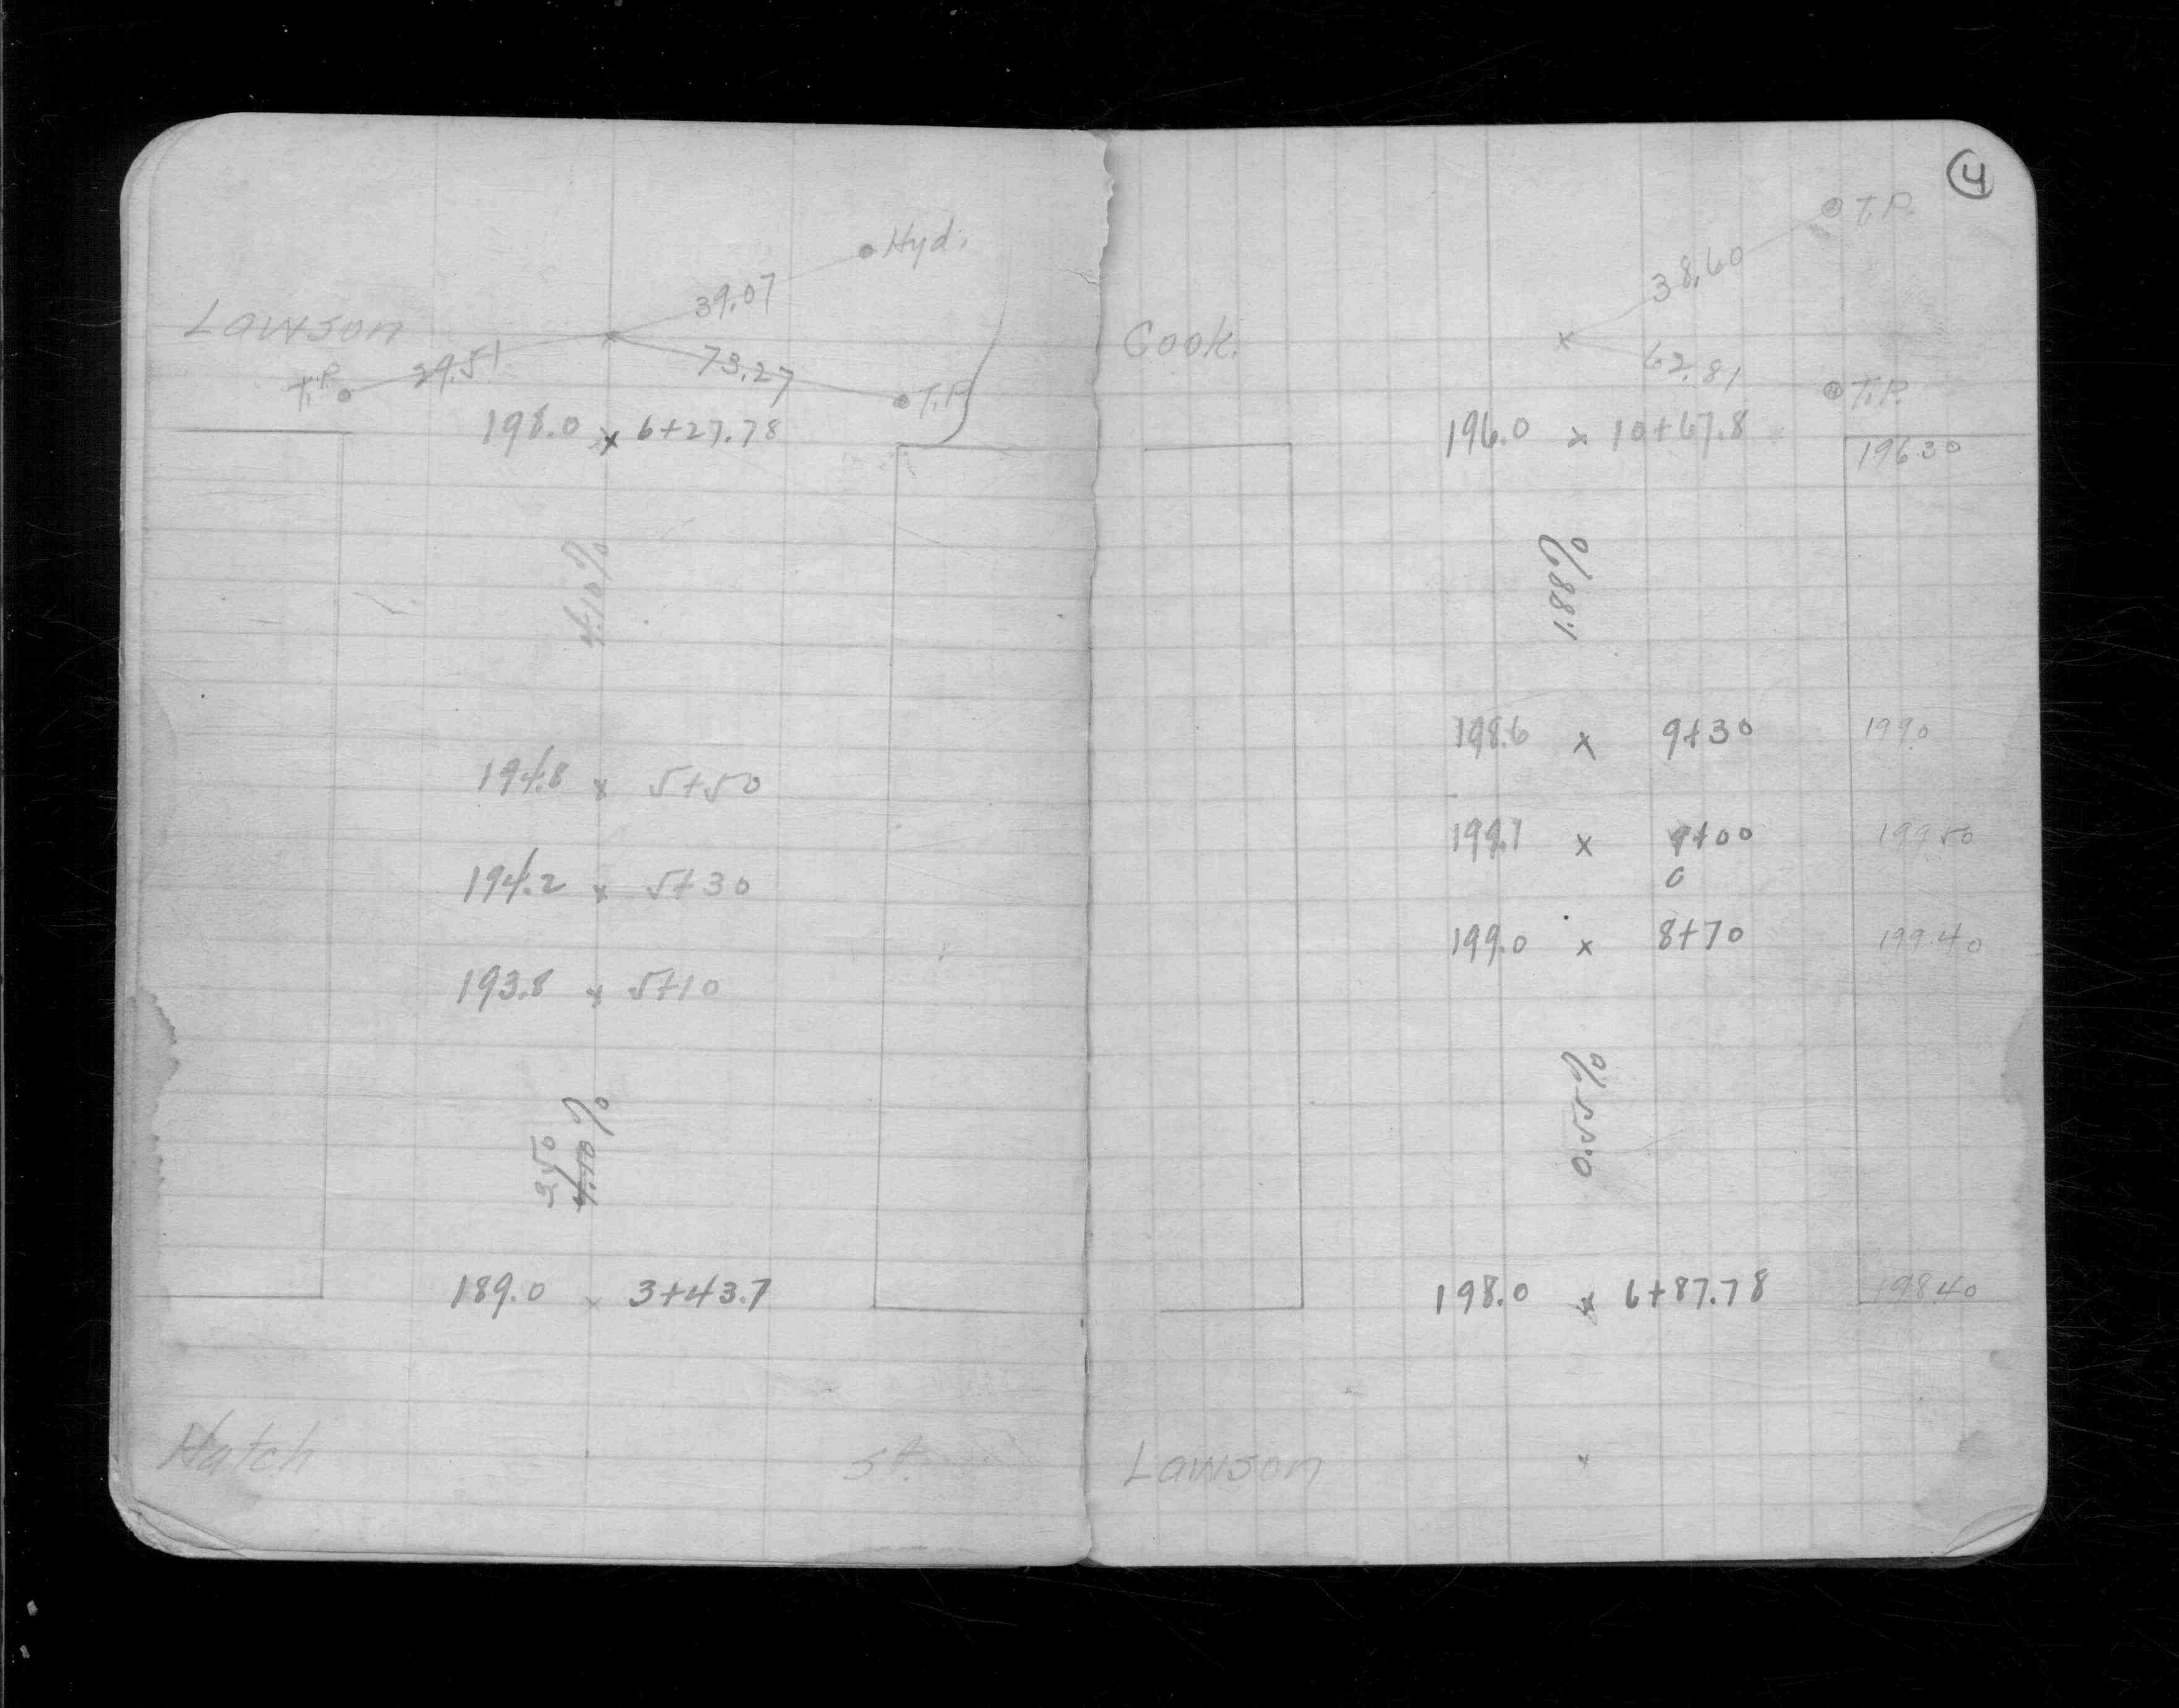 Hyd.
39.07
Lawson
29.51
73.27
T.P.
T.P.
198.0 x 6+27.78
4.10%
194.8 x 5+50
194.2 x 5+30
193.8 x 5+10
3.50
4.10%
189.0 x 3+43.7
Hatch St.
4
T.P.
38.60
Cook.
x
62.81
T.P.
196.0 x 10+67.8
196.30
1.88%
198.6 x 9+30 199.0
199.1 x 9+00 199.50
0
199.0 x 8+70 199.40
0.55%
198.0 x 6+87.78 198.40
Lawson x